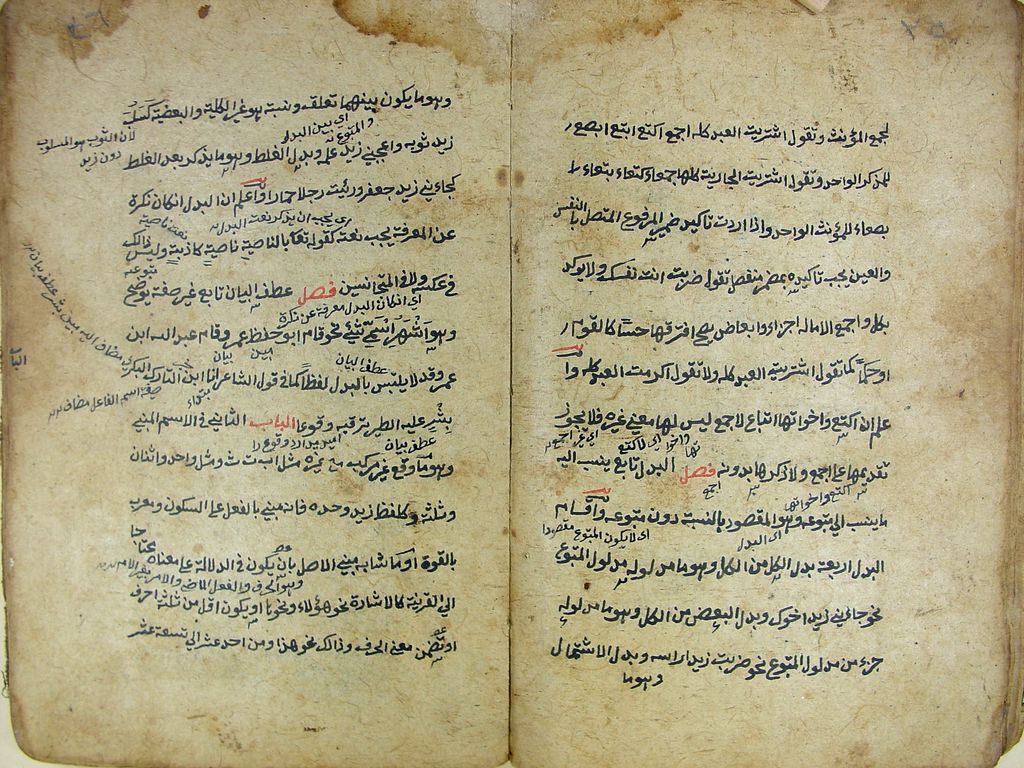 لجمع المؤنث وتقول اشتريت العبد كله اجمع اكتع ابتع ابصع
للمذكر الواحد وتقول اشتريت الجارية كلها جمعاء كتعاء بتعاء
بصعاء للمؤنث الواحد واذا اردت تاكيد ضمير المرفوع المتصل بالنفس
والعين يجب تاكيده بضمير منفصل تقول ضربت انت نفسك ولا يوكد
بكل واجمع الا ماله اجزاء وابعاض يصح افترقها حسا كالقوم
او حكما كما تقول اشتريت العبد كله ولا تقول اكرمت العبد كله وا
علم ان اكتع واخواتها اتباع لاجمع ليس لها معنى غيره فلا يجوز
تقديمها على اجمع ولا ذكرها بدونه فصل البدل تابع ينسب اليه
اكتع واخواتها
اجمع
ما ينسب الى متبوعه وهو المقصود بالنسبة دون متبوعه واقسام
اى البدل
اى لا يكون المتبوع مقصودا
البدل اربعة بدل الكل من الكل وهو ما مدلوله مدلول المتبوع
نحو جاءني زيد اخوك وبدل البعض من الكل وهو ما مدلوله
جزء من مدلول المتبوع نحو ضربت زيدا راسه وبدل الاشتمال
وهو ما
وهو ما يكون بينهما تعلق ونسبة هو غير الكلية والبعضية كسلب
اى بين البدل والمتبوع
لان الثوب هو المسلوب دون زيد
زيد ثوبه واعجبني زيد علمه وبدل الغلط وهو ما يذكر بعد الغلط
كجاءني زيد جعفر ورئيت رجلا حمارا واعلم ان البدل ان كان نكرة
اى يجب ان يذكر نعت البدل
نعت ناصية
عن المعرفة يجب نعته كقوله تعالى بالناصية ناصية كاذبة وليس ذالك
متبوعه
في عكسه ولا في المتجانسين فصل عطف البيان تابع غير صفة يوضح
اى ان كان البدل معرفة عن نكرة
وهو اشهر اسمي شئ نحو قام ابو حفظ عمر وقام عبد الله ابن
عطف البيان
عمر وقد لا يلتبس بالبدل لفظا كما في قول الشاعر انا ابن التارك البكري
بشر عليه الطير ترقبه وقوعا الباب الثاني في الاسم المبني
عطف بيان
وهو ما وقع غير مركب مع غيره مثل ا ب ت ث ومثل واحد واثنان
وثلثة وكلفظ زيد وحده فانه مبني بالفعل على السكون ومعرب
بالقوة او ما شابه مبني الاصل بان يكون في الدلالة على معناه محتاجا
وهو الحرف والفعل الماضي والامر
الى القرينة كالاشارة نحو هؤلاء ونحوها او يكون اقل من ثلثة احرف
او تضمن معنى الحرف وذالك نحو هذا ومن احد عشر الى تسعة عشر